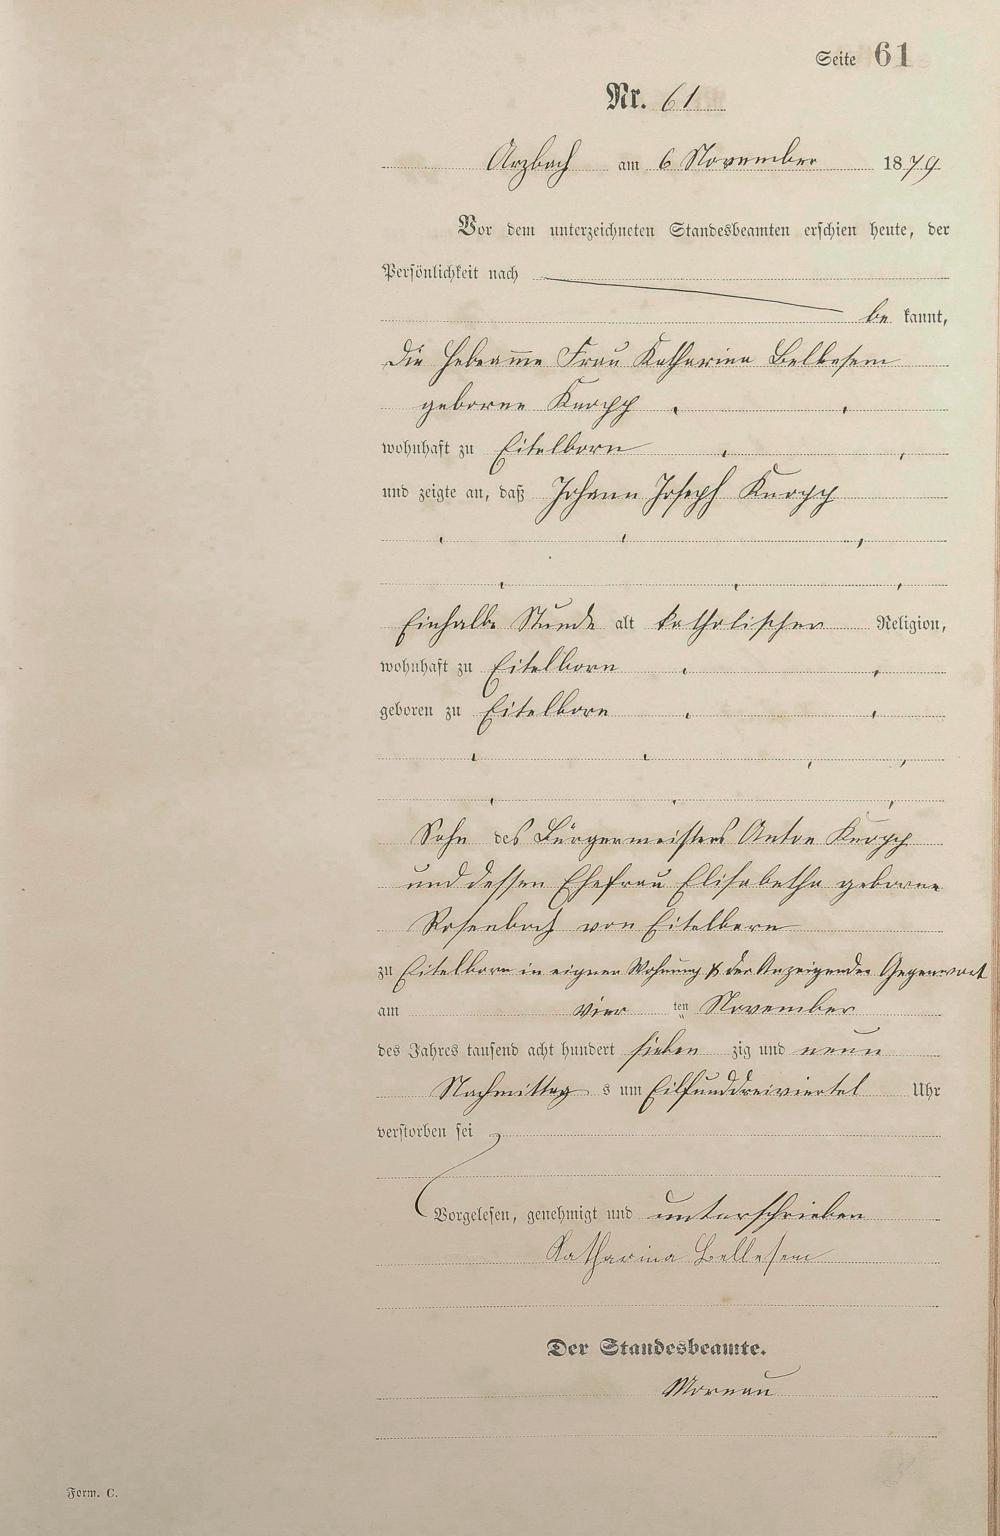 Seite 61
Nr. 61
Arzbach am 6 November 1879
Vor dem unterzeichneten Standesbeamten erschien heute, der
Persönlichkeit nach
be kannt,
die Hebamme Frau Katharina Bellesem
geborne Knopp
wohnhaft zu Eitelborn
und zeigte an, daß Johann Joseph Knopp
Einhalbe Stunde alt katholischer Religion,
wohnhaft zu Eitelborn
geboren zu Eitelborn
Sohn des Bürgermeisters Anton Knopp
und dessen Ehefrau Elisabetha geborne
Rosenbach von Eitelborn
zu Eitelborn in eigner Wohnung & der Anzeigenden Gegenwart
am vier ten November
des Jahres tausend acht hundert sieben zig und neun
Nachmittag s um Eilfunddreiviertel Uhr
verstorben sei
Vorgelesen, genehmigt und unterschrieben
Katharina Bellesem
Der Standesbeamte.
Mornau
Form. C.